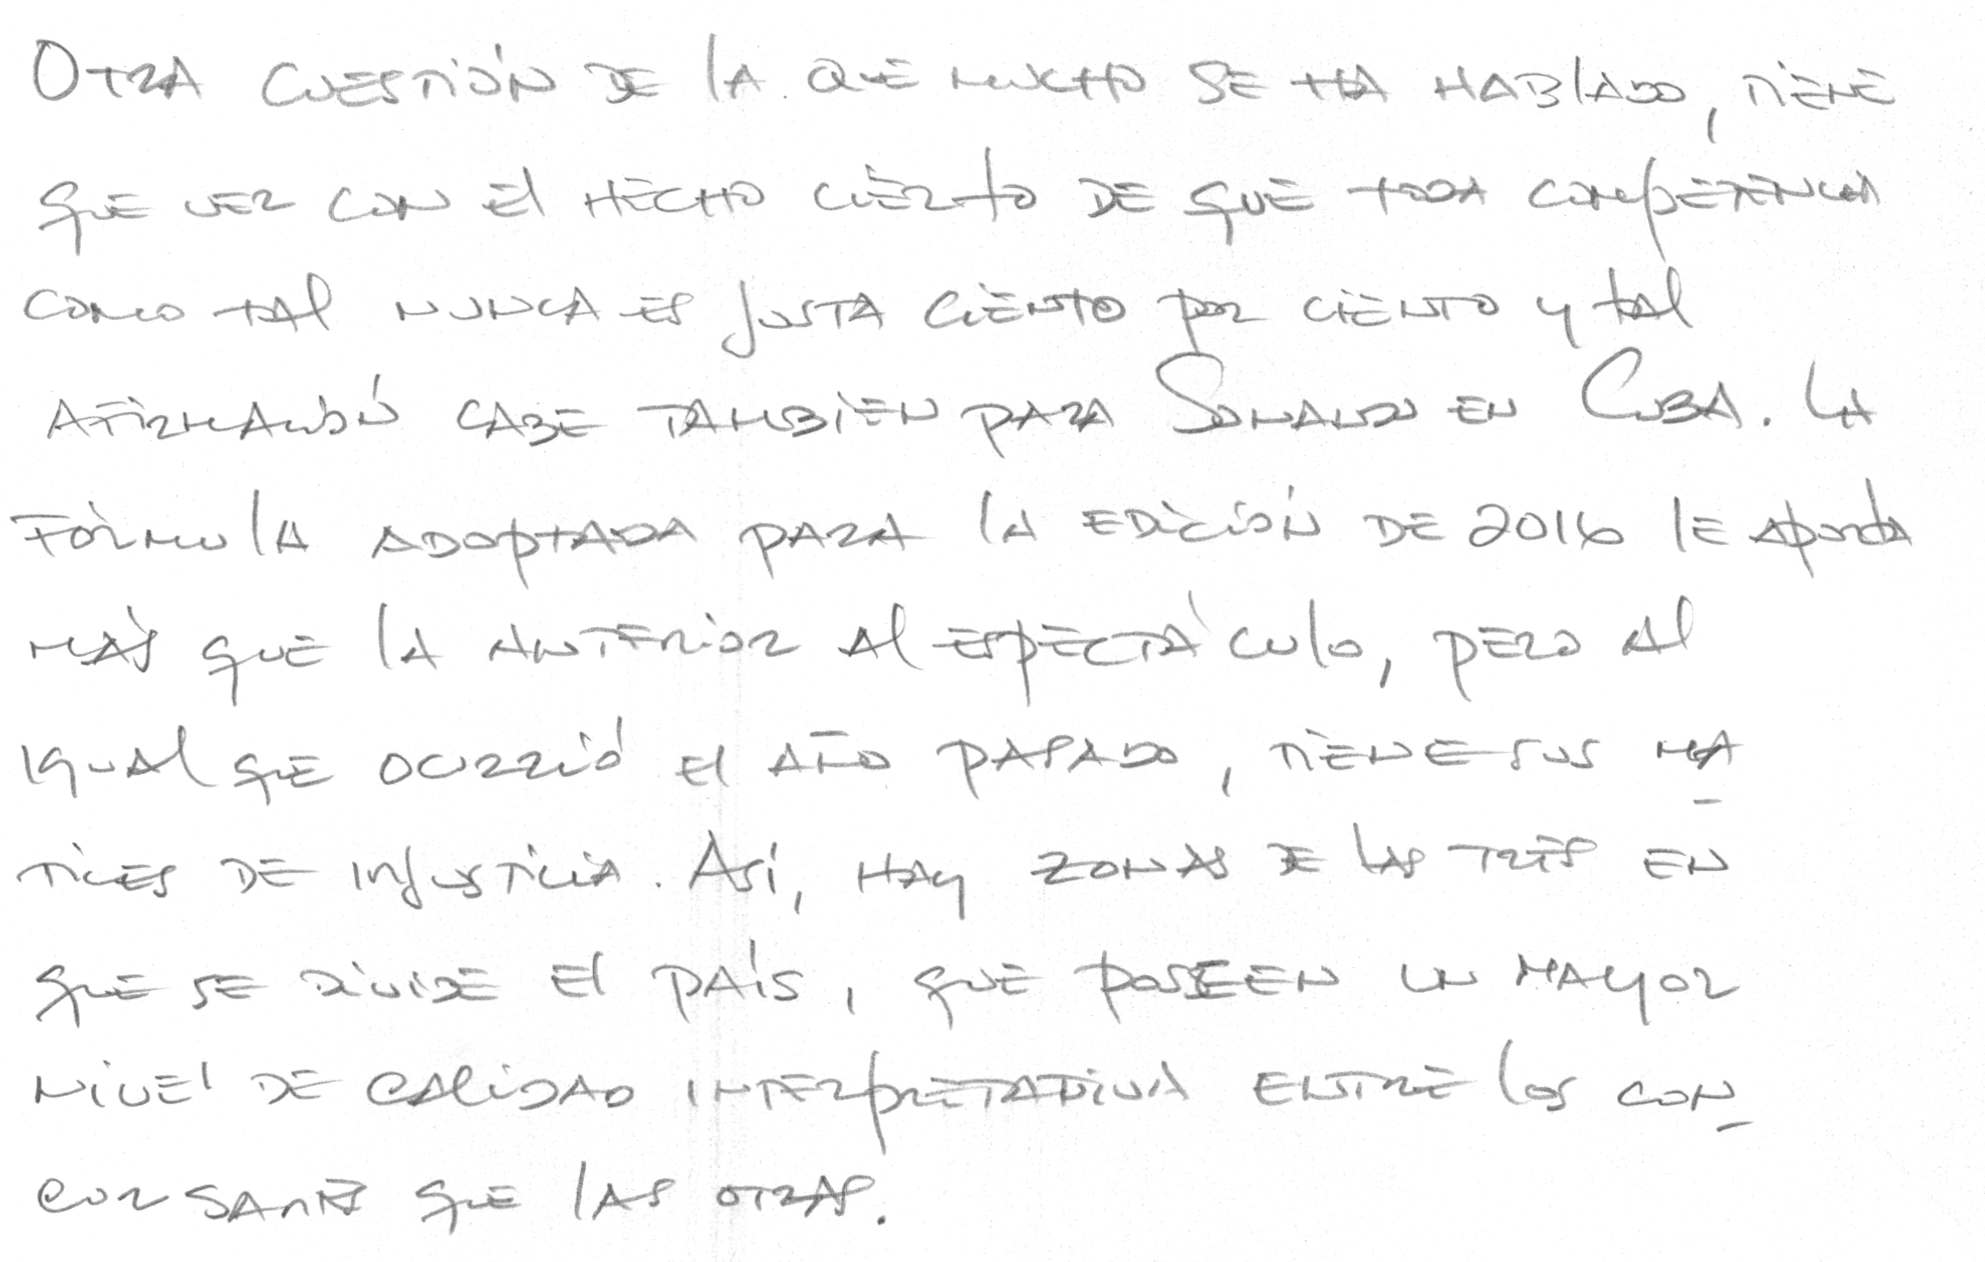 Otra cuestión de la que mucho se ha hablado, tiene
que ver con el hecho cierto de que toda competencia
como tal nunca es justa ciento por ciento y tal
afirmación cabe también para Sonando en Cuba. La
fórmula adoptada para la edición de 2016 le aporta
más que la anterior al espectáculo, pero al
igual que ocurrió el año pasado, tiene sus ma-
tices de injusticia. Así, hay zonas de las tres en
que se divide el país, que poseen un mayor
nivel de calidad interpretativa entre los con-
cursantes que las otras.